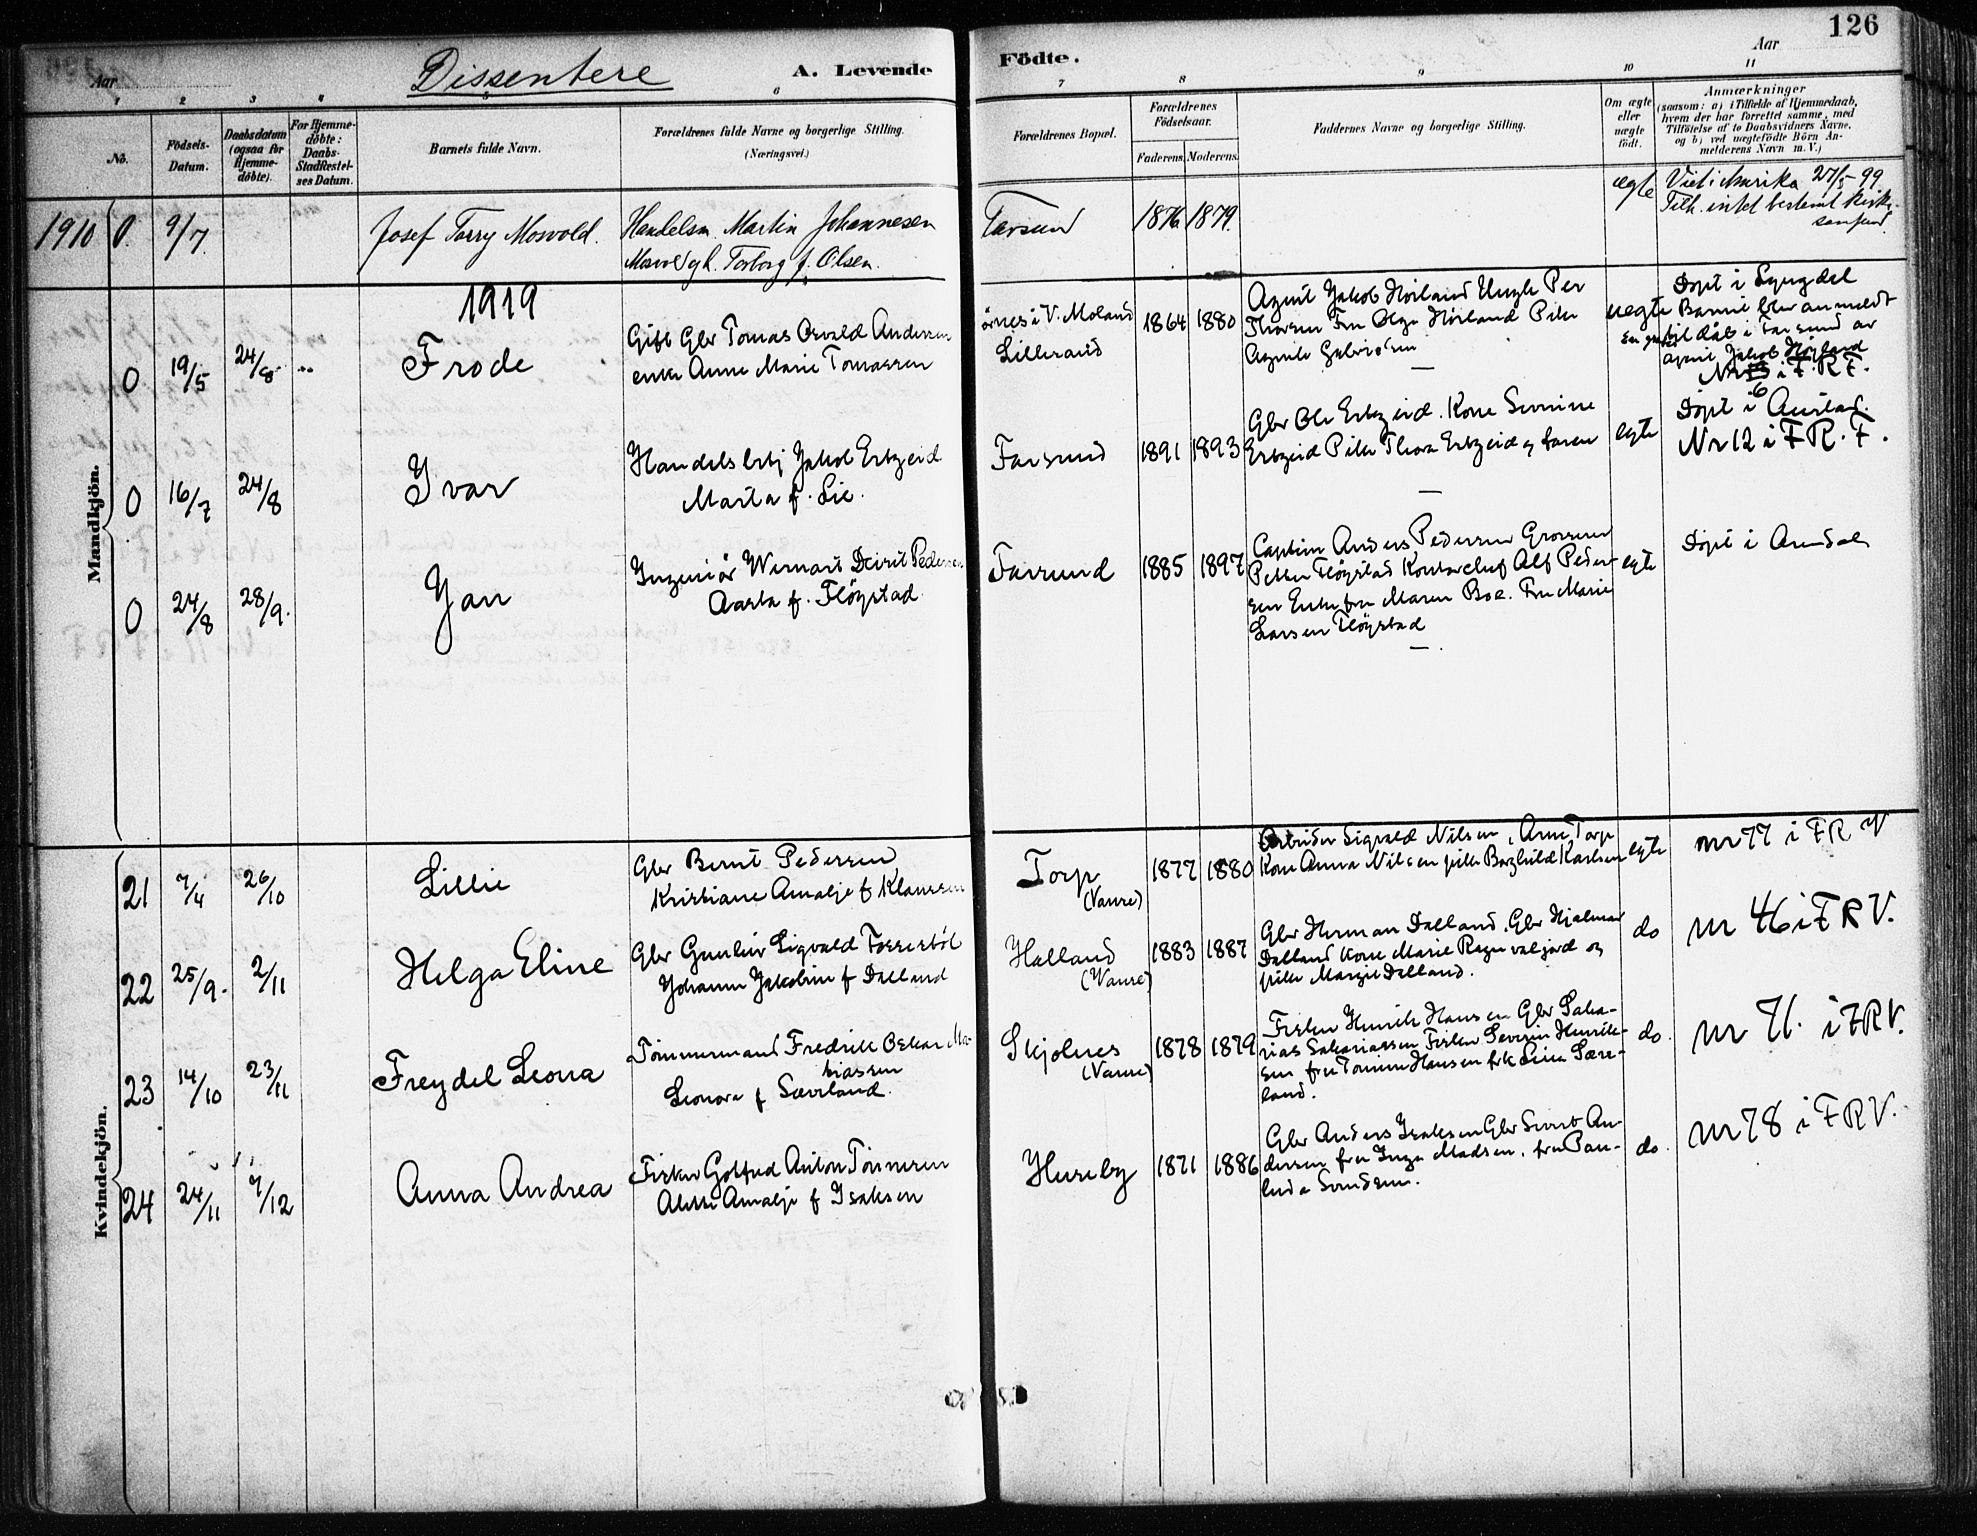 126
Aar
Dissentere
A. Levende
Födte.
Aar
1 2 3 4 5 6 7 8 9 10 11
No.
Födsels-
Datum.
Daabsdatum
(ogsaa for
Hjemme-
döbte).
For Hjemme-
döbte:
Daabs-
Stadfæstel-
ses Datum.
Barnets fulde Navn.
Forældrenes fulde Navne og borgerlige Stilling.
(Næringsvei.)
Forældrenes Bopæl.
Forældrenes
Födselsaar.
Faderens. Moderens.
Faddernes Navne og borgerlige Stilling.
Om ægte
eller
uægte
födt.
Anmærkninger
(saasom: a) i Tilfælde af Hjemmedaab,
hvem der har forrettet samme, med
Tilföielse af to Daabsvidners Navne,
og b) ved uægtefödte Börn An-
melderens Navn m. V.)
1910 0. 9/7. Josef Torry Mosvold.
Handelsm. Martin Johannesen
Mosvold gh. Torborg f. Olsen.
Farsund 1876 1879. ægte
Viet i Amerika 27/5-99.
Tilh. intet bestemt Kirke-
samfund.
Mandkjön.
1919
0 19/5 24/8 Frode
Gift Gbr Tomas Osvald Andersen
enke Anne Marie Tomassen
i V. Moland
Lillesand
1864 1880
Agent Jakob Höiland Ungk Per
Thorsen Fru Olga Höiland Pike
Agnete Gabrielsen
uegte
Döpt i Lyngdal
Barnet blev anmeldt
til dåb i Farsund av
agent Jakob Höiland
Nr 6 i F. R F.
0 16/7 24/8 Yvar
Handelsbetj Jakob Ertzeid
Marta f. Lie.
Farsund 1891 1893
Gbr Ole Ertzeid. Kone Sevrine
Ertzeid Pike Thora Ertzeid og faren
egte
Döpt i Austad.
Nr 12 i F R. F.
0 24/8 28/9. Yan
Ingeniör Wernart Deirit Pedersen
Aasta f. Flöystad
Farsund 1885 1897
Captein Anders Pedersen Grosserer
Petter Flöystad Kontorchef Alf Peder-
sen Enkefru Maren Boe. Fru Marie
Larsen Flöystad
egte
Döpt i Arendal
Kvindekjön.
21 7/4 26/10 Lillie
Gbr Bernt Pedersen
Kristiane Amalje f Klaussen
Torp
(Vanse)
1877 1880
Arbeider Sigvald Nilsen, Arne Torp
Kone Anna Nilsen pike Borghild Karlsen
egte
nr 77 i F R V
22 25/9. 2/11 Helga Eline
Gbr Gunleiv Sigvald Fosserstöl
Johanne Jakobine f Dalland
Halland
(Vanse)
1883 1887
Gbr Herman Dalland, Gbr Hjalmar
Dalland Kone Marie Ragnvaljord og
pike Margit Dalland.
do
nr 46 i F R V.
23 14/10 23/11 Freydel Leona
Tömmermand Fredrik Oskar Ma-
tiassen
Leonora f Sævland.
Skjolnes
(Vanse)
1878 1879
Fisker Henrik Hansen Gbr Saka-
rias Sakariassen Fisker Severin Henrik-
sen fru Tomine Hansen frk Lina Sære-
land.
do.
nr 71. i F R V.
24 24/11 7/12 Anna Andrea
Fisker Gotfred Anton Tönnesen
Alette Amalje f Isaksen
Huseby 1871 1886
Gbr Anders Isaksen Gbr Sivert An-
dersen fru Inga Madsen, fru Pau-
line Svendsen.
do.
nr 78 i F R V.